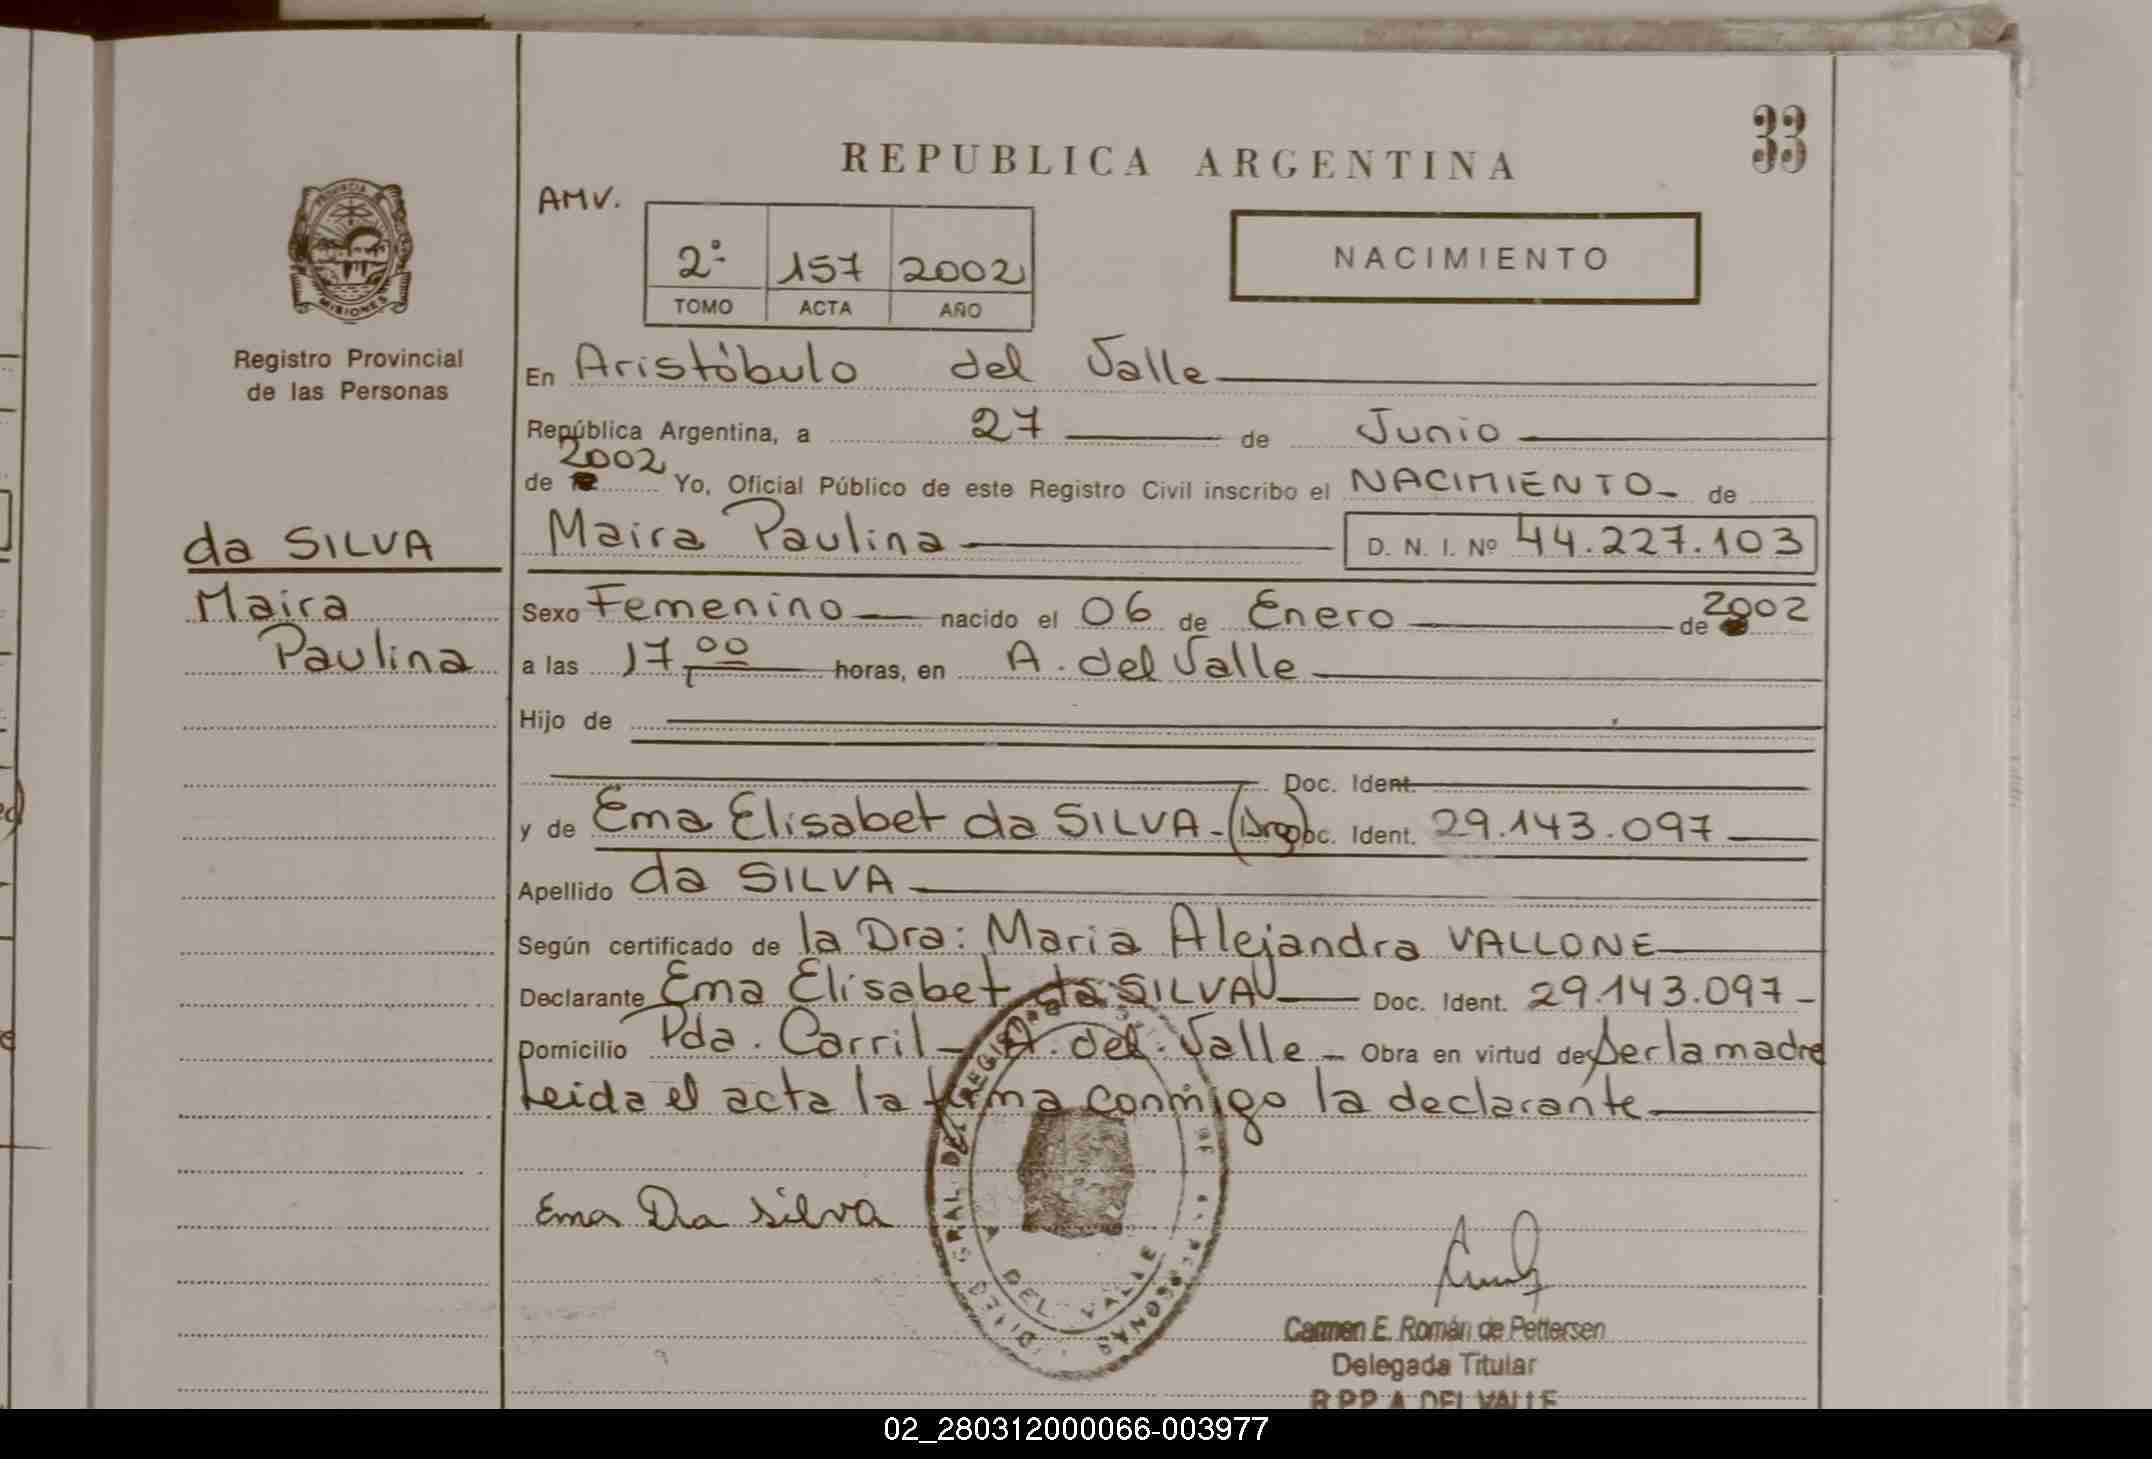 33
REPUBLICA ARGENTINA
AMV.
PROVINCIA
MISIONES
2º 157 2002
TOMO ACTA AÑO
NACIMIENTO
Registro Provincial
de las Personas
En Aristóbulo del Valle
República Argentina, a 27 de Junio
de 2002 Yo, Oficial Público de este Registro Civil inscribo el NACIMIENTO de
da SILVA
Maira Paulina D. N. I. Nº 44.227.103
Maira
Paulina
Sexo Femenino nacido el 06 de Enero de 2002
a las 17,00 horas, en A. del Valle
Hijo de
Doc. Ident.
y de Ema Elisabet da SILVA - (Arg) Doc. Ident. 29.143.097
Apellido da SILVA
Según certificado de la Dra: Maria Alejandra VALLONE
Declarante Ema Elisabet da SILVA Doc. Ident. 29.143.097 -
Domicilio Pda. Carril - A. del Valle - Obra en virtud de ser la madre
Leida el acta la firma conmigo la declarante
Ema Da Silva
GRAL. DEL REGISTRO
DE LAS PERSONAS
A. DEL VALLE
Carmen E. Román de Pettersen
Delegada Titular
R.P.P. A. DEL VALLE
02_280312000066-003977